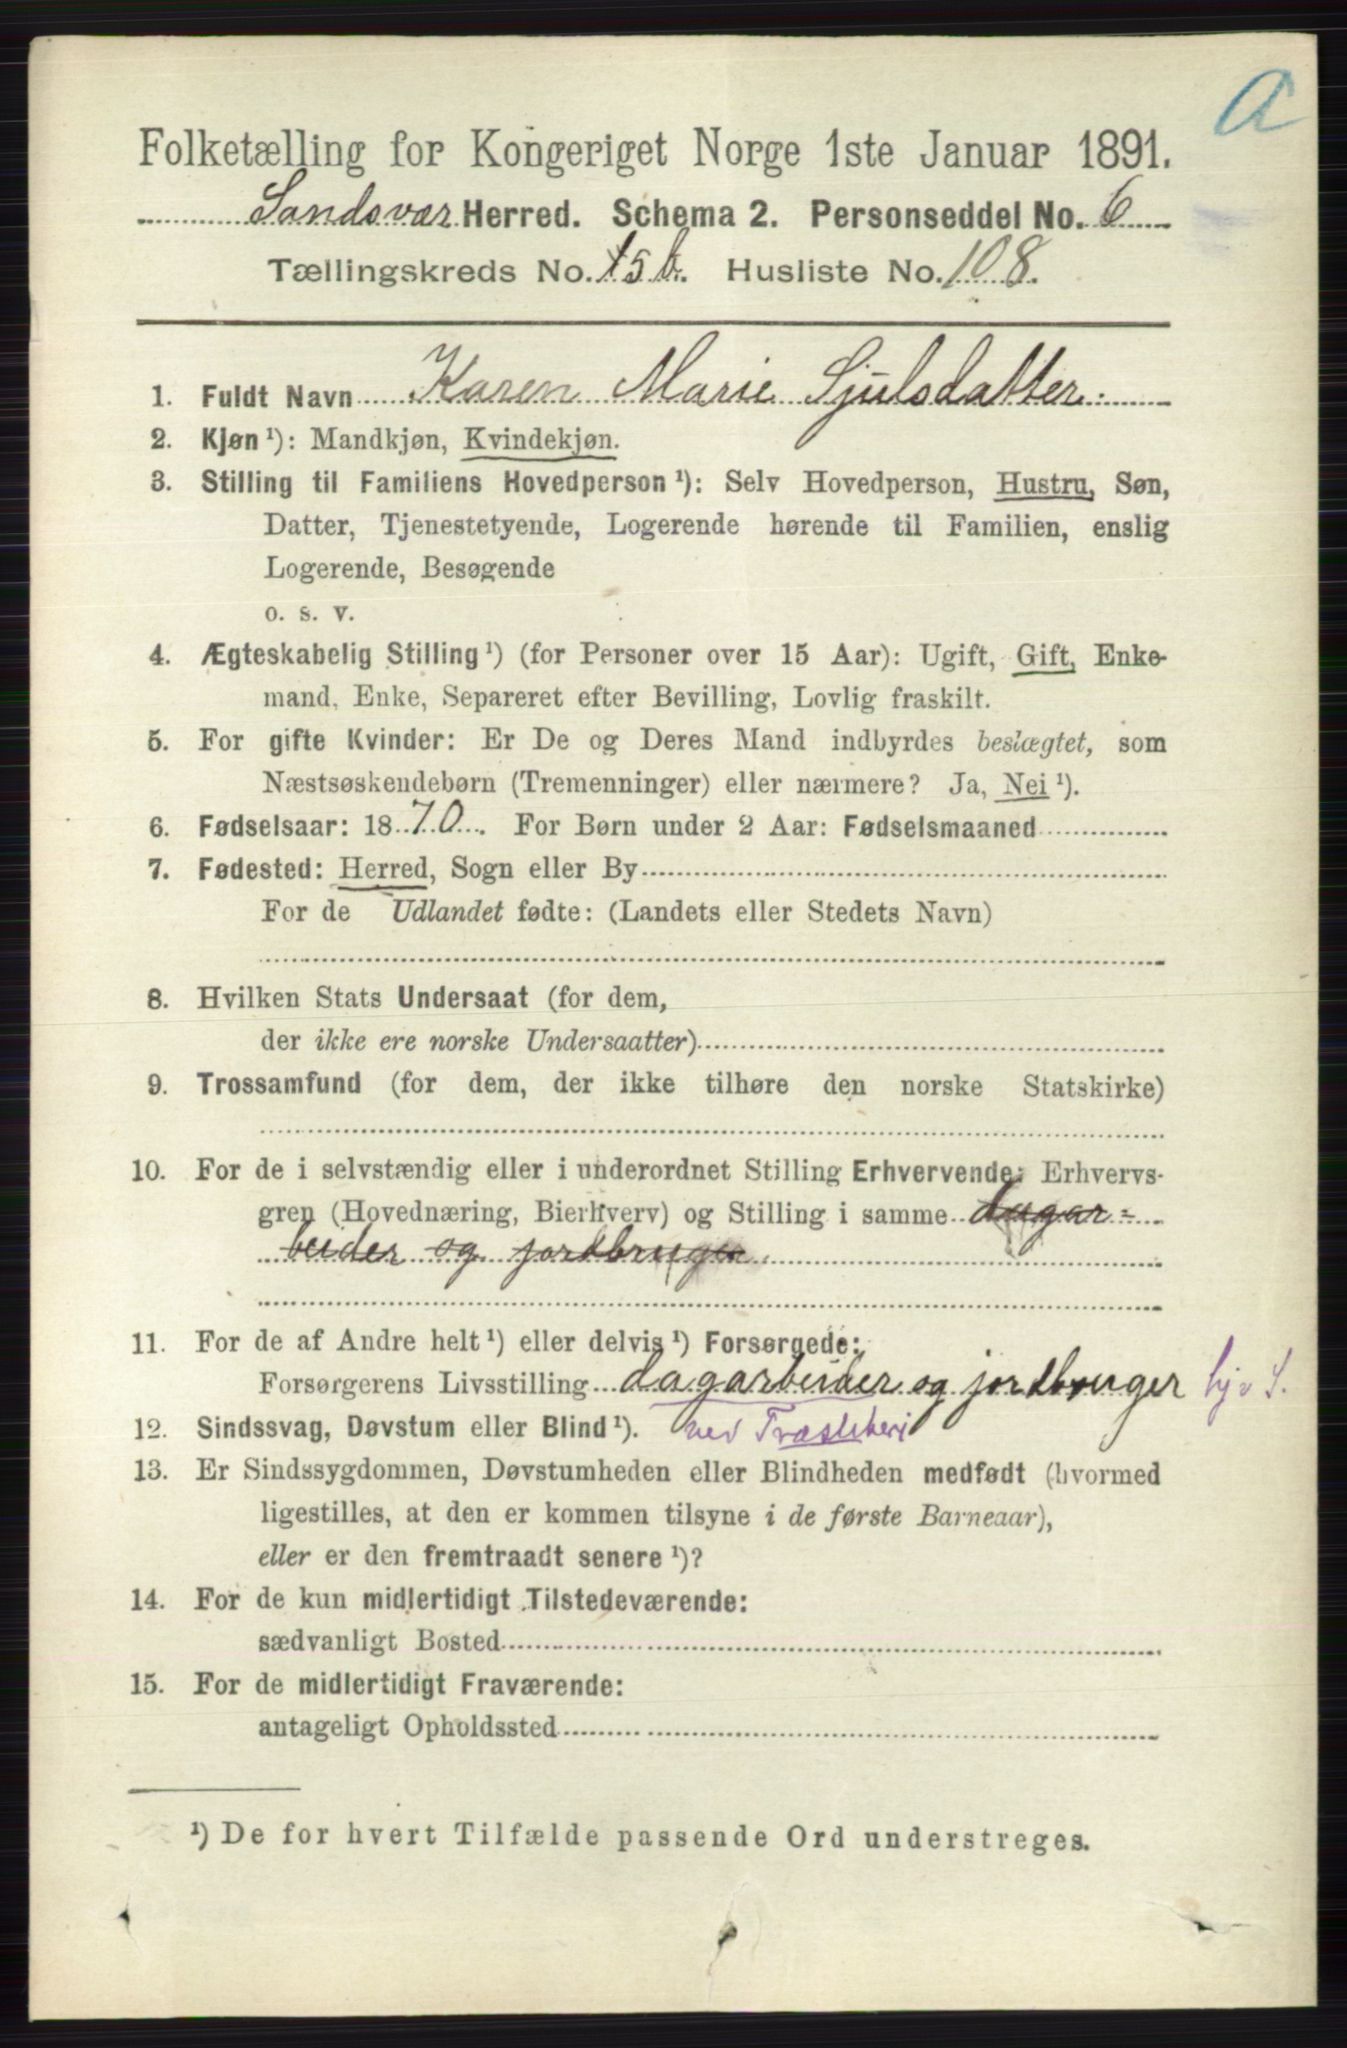 a
Folketælling for Kongeriget Norge 1ste Januar 1891.
Sandsvær Herred. Schema 2. Personseddel No. 6
Tællingskreds No. 15b. Husliste No. 108.
1. Fuldt Navn Karen Marie Sjulsdatter.
2. Kjøn ¹): Mandkjøn, Kvindekjøn.
3. Stilling til Familiens Hovedperson ¹): Selv Hovedperson, Hustru, Søn,
Datter, Tjenestetyende, Logerende hørende til Familien, enslig
Logerende, Besøgende
o. s. v.
4. Ægteskabelig Stilling ¹) (for Personer over 15 Aar): Ugift, Gift, Enke-
mand, Enke, Separeret efter Bevilling, Lovlig fraskilt.
5. For gifte Kvinder: Er De og Deres Mand indbyrdes beslægtet, som
Næstsøskendebørn (Tremenninger) eller nærmere? Ja, Nei ¹).
6. Fødselsaar: 1870. For Børn under 2 Aar: Fødselsmaaned
7. Fødested: Herred, Sogn eller By
For de Udlandet fødte: (Landets eller Stedets Navn)
8. Hvilken Stats Undersaat (for dem,
der ikke ere norske Undersaatter)
9. Trossamfund (for dem, der ikke tilhøre den norske Statskirke)
10. For de i selvstændig eller i underordnet Stilling Erhvervende: Erhvervs-
gren (Hovednæring, Bierhverv) og Stilling i samme dagar=
beider og jordbruger.
11. For de af Andre helt ¹) eller delvis ¹) Forsørgede:
Forsørgerens Livsstilling dagarbeider og jordbruger
12. Sindssvag, Døvstum eller Blind ¹). ved Træsliberi
13. Er Sindssygdommen, Døvstumheden eller Blindheden medfødt (hvormed
ligestilles, at den er kommen tilsyne i de første Barneaar),
eller er den fremtraadt senere ¹)?
14. For de kun midlertidigt Tilstedeværende:
sædvanligt Bosted
15. For de midlertidigt Fraværende:
antageligt Opholdssted
¹) De for hvert Tilfælde passende Ord understreges.